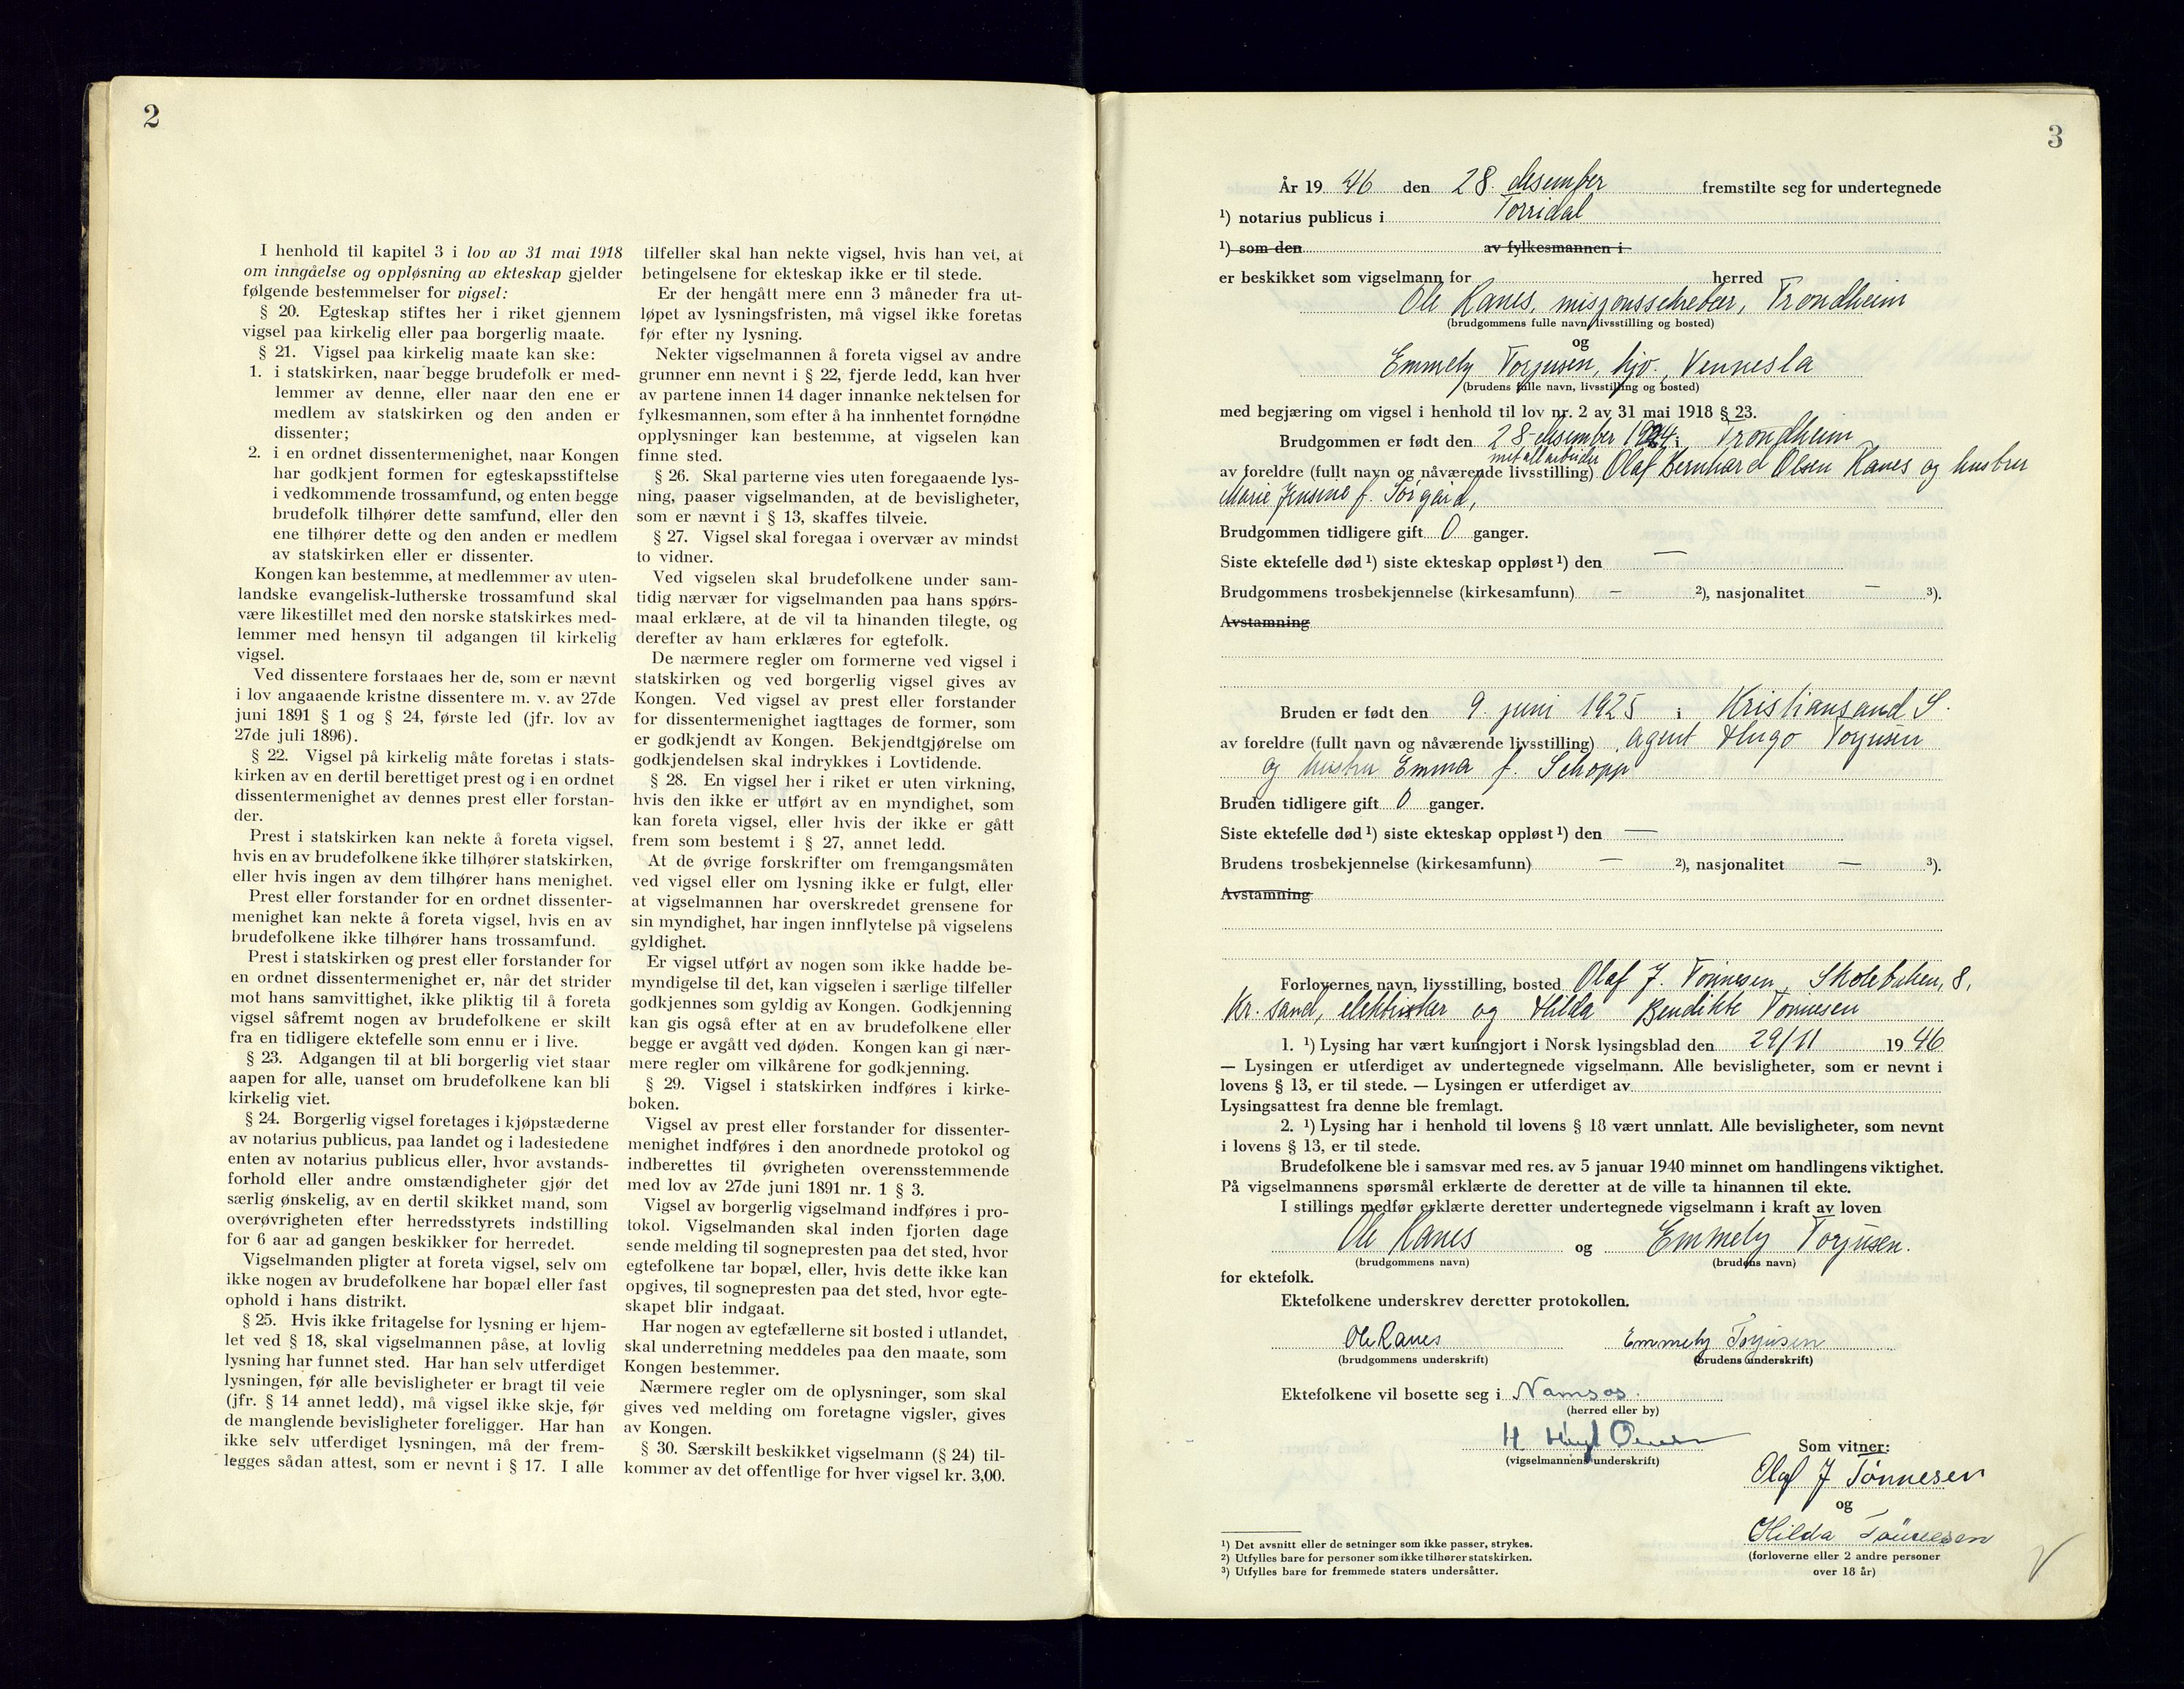 2
I henhold til kapitel 3 i lov av 31 mai 1918
om inngåelse og oppløsning av ekteskap gjelder
følgende bestemmelser for vigsel:
§ 20. Egteskap stiftes her i riket gjennem
vigsel paa kirkelig eller paa borgerlig maate.
§ 21. Vigsel paa kirkelig maate kan ske:
1. i statskirken, naar begge brudefolk er med-
lemmer av denne, eller naar den ene er
medlem av statskirken og den anden er
dissenter;
2. i en ordnet dissentermenighet, naar Kongen
har godkjent formen for egteskapsstiftelse
i vedkommende trossamfund, og enten begge
brudefolk tilhører dette samfund, eller den
ene tilhører dette og den anden er medlem
av statskirken eller er dissenter.
Kongen kan bestemme, at medlemmer av uten-
landske evangelisk-lutherske trossamfund skal
være likestillet med den norske statskirkes med-
lemmer med hensyn til adgangen til kirkelig
vigsel.
Ved dissentere forstaaes her de, som er nævnt
i lov angaaende kristne dissentere m. v. av 27de
juni 1891 § 1 og § 24, første led (jfr. lov av
27de juli 1896).
§ 22. Vigsel på kirkelig måte foretas i stats-
kirken av en dertil berettiget prest og i en ordnet
dissentermenighet av dennes prest eller forstan-
der.
Prest i statskirken kan nekte å foreta vigsel,
hvis en av brudefolkene ikke tilhører statskirken,
eller hvis ingen av dem tilhører hans menighet.
Prest eller forstander for en ordnet dissenter-
menighet kan nekte å foreta vigsel, hvis en av
brudefolkene ikke tilhører hans trossamfund.
Prest i statskirken og prest eller forstander for
en ordnet dissentermenighet er, når det strider
mot hans samvittighet, ikke pliktig til å foreta
vigsel såfremt nogen av brudefolkene er skilt
fra en tidligere ektefelle som ennu er i live.
§ 23. Adgangen til at bli borgerlig viet staar
aapen for alle, uanset om brudefolkene kan bli
kirkelig viet.
§ 24. Borgerlig vigsel foretages i kjøpstæderne
av notarius publicus, paa landet og i ladestedene
enten av notarius publicus eller, hvor avstands-
forhold eller andre omstændigheter gjør det
særlig ønskelig, av en dertil skikket mand, som
overøvrigheten efter herredsstyrets indstilling
for 6 aar ad gangen beskikker for herredet.
Vigselmanden pligter at foreta vigsel, selv om
ikke nogen av brudefolkene har bopæl eller fast
ophold i hans distrikt.
§ 25. Hvis ikke fritagelse for lysning er hjem-
let ved § 18, skal vigselmannen påse, at lovlig
lysning har funnet sted. Har han selv utferdiget
lysningen, før alle bevisligheter er bragt til veie
(jfr. § 14 annet ledd), må vigsel ikke skje, før
de manglende bevisligheter foreligger. Har han
ikke selv utferdiget lysningen, må der frem-
legges sådan attest, som er nevnt i § 17. I alle
tilfeller skal han nekte vigsel, hvis han vet, at
betingelsene for ekteskap ikke er til stede.
Er der hengått mere enn 3 måneder fra ut-
løpet av lysningsfristen, må vigsel ikke foretas
før efter ny lysning.
Nekter vigselmannen å foreta vigsel av andre
grunner enn nevnt i § 22, fjerde ledd, kan hver
av partene innen 14 dager innanke nektelsen for
fylkesmannen, som efter å ha innhentet fornødne
opplysninger kan bestemme, at vigselen kan
finne sted.
§ 26. Skal parterne vies uten foregaaende lys-
ning, paaser vigselmanden, at de bevisligheter,
som er nævnt i § 13, skaffes tilveie.
§ 27. Vigsel skal foregaa i overvær av mindst
to vidner.
Ved vigselen skal brudefolkene under sam-
tidig nærvær for vigselmanden paa hans spørs-
maal erklære, at de vil ta hinanden tilegte, og
derefter av ham erklæres for egtefolk.
De nærmere regler om formerne ved vigsel i
statskirken og ved borgerlig vigsel gives av
Kongen. Ved vigsel av prest eller forstander
for dissentermenighet iagttages de former, som
er godkjendt av Kongen. Bekjendtgjørelse om
godkjendelsen skal indrykkes i Lovtidende.
§ 28. En vigsel her i riket er uten virkning,
hvis den ikke er utført av en myndighet, som
kan foreta vigsel, eller hvis der ikke er gått
frem som bestemt i § 27, annet ledd.
At de øvrige forskrifter om fremgangsmåten
ved vigsel eller om lysning ikke er fulgt, eller
at vigselmannen har overskredet grensene for
sin myndighet, har ingen innflytelse på vigselens
gyldighet.
Er vigsel utført av nogen som ikke hadde be-
myndigelse til det, kan vigselen i særlige tilfeller
godkjennes som gyldig av Kongen. Godkjenning
kan gis også efter at en av brudefolkene eller
begge er avgått ved døden. Kongen kan gi nær-
mere regler om vilkårene for godkjenning.
§ 29. Vigsel i statskirken indføres i kirke-
boken.
Vigsel av prest eller forstander for dissenter-
menighet indføres i den anordnede protokol og
indberettes til øvrigheten overensstemmende
med lov av 27de juni 1891 nr. 1 § 3.
Vigsel av borgerlig vigselmand indføres i pro-
tokol. Vigselmanden skal inden fjorten dage
sende melding til sognepresten paa det sted, hvor
egtefolkene tar bopæl, eller, hvis dette ikke kan
opgives, til sognepresten paa det sted, hvor egte-
skapet blir indgaat.
Har nogen av egtefællerne sit bosted i utlandet,
skal underretning meddeles paa den maate, som
Kongen bestemmer.
Nærmere regler om de oplysninger, som skal
gives ved melding om foretagne vigsler, gives
av Kongen.
§ 30. Særskilt beskikket vigselmann (§ 24) til-
kommer av det offentlige for hver vigsel kr. 3,00.
3
År 19 46 den 28. desember fremstilte seg for undertegnede
¹) notarius publicus i Torridal
¹) som den av fylkesmannen i
er beskikket som vigselmann for herred
Ole Ranes, misjonssekretær, Trondheim
(brudgommens fulle navn, livsstilling og bosted)
og
Emmely Torjusen, hjv., Vennesla
(brudens fulle navn, livsstilling og bosted)
med begjæring om vigsel i henhold til lov nr. 2 av 31 mai 1918 § 23.
Brudgommen er født den 28. desember 1924 i Trondheim
metallarbeider
av foreldre (fullt navn og nåværende livsstilling) Olaf Bernhard Olsen Ranes og hustru
Marie Jensine f. Sørgård,
Brudgommen tidligere gift 0 ganger.
Siste ektefelle død ¹) siste ekteskap oppløst ¹) den —
Brudgommens trosbekjennelse (kirkesamfunn) — ²), nasjonalitet — ³).
Avstamning
Bruden er født den 9. juni 1925 i Kristiansand S.
av foreldre (fullt navn og nåværende livsstilling) agent Hugo Torjusen
og hustru Emma f. Schopp
Bruden tidligere gift 0 ganger.
Siste ektefelle død ¹) siste ekteskap oppløst ¹) den —
Brudens trosbekjennelse (kirkesamfunn) — ²), nasjonalitet — ³).
Avstamning
Forlovernes navn, livsstilling, bosted Olaf J. Tönnesen, Skolebakken, 8,
Kr. sand, elektriker og Hilda Bendikte Tönnesen
1. ¹) Lysing har vært kunngjort i Norsk lysingsblad den 29/11 1946
— Lysingen er utferdiget av undertegnede vigselmann. Alle bevisligheter, som er nevnt i
lovens § 13, er til stede. — Lysingen er utferdiget av
Lysingsattest fra denne ble fremlagt.
2. ¹) Lysing har i henhold til lovens § 18 vært unnlatt. Alle bevisligheter, som nevnt
i lovens § 13, er til stede.
Brudefolkene ble i samsvar med res. av 5 januar 1940 minnet om handlingens viktighet.
På vigselmannens spørsmål erklærte de deretter at de ville ta hinannen til ekte.
I stillings medfør erklærte deretter undertegnede vigselmann i kraft av loven
Ole Ranes og Emmely Torjusen.
(brudgommens navn) (brudens navn)
for ektefolk.
Ektefolkene underskrev deretter protokollen.
Ole Ranes Emmely Torjusen
(brudgommens underskrift) (brudens underskrift)
Ektefolkene vil bosette seg i Namsos.
(herred eller by)
H
(vigselmannens underskrift)
Som vitner:
Olaf J Tönnesen
og
Hilda Tönnesen
(forloverne eller 2 andre personer
over 18 år)
¹) Det avsnitt eller de setninger som ikke passer, strykes.
²) Utfylles bare for personer som ikke tilhører statskirken.
³) Utfylles bare for fremmede staters undersåtter.